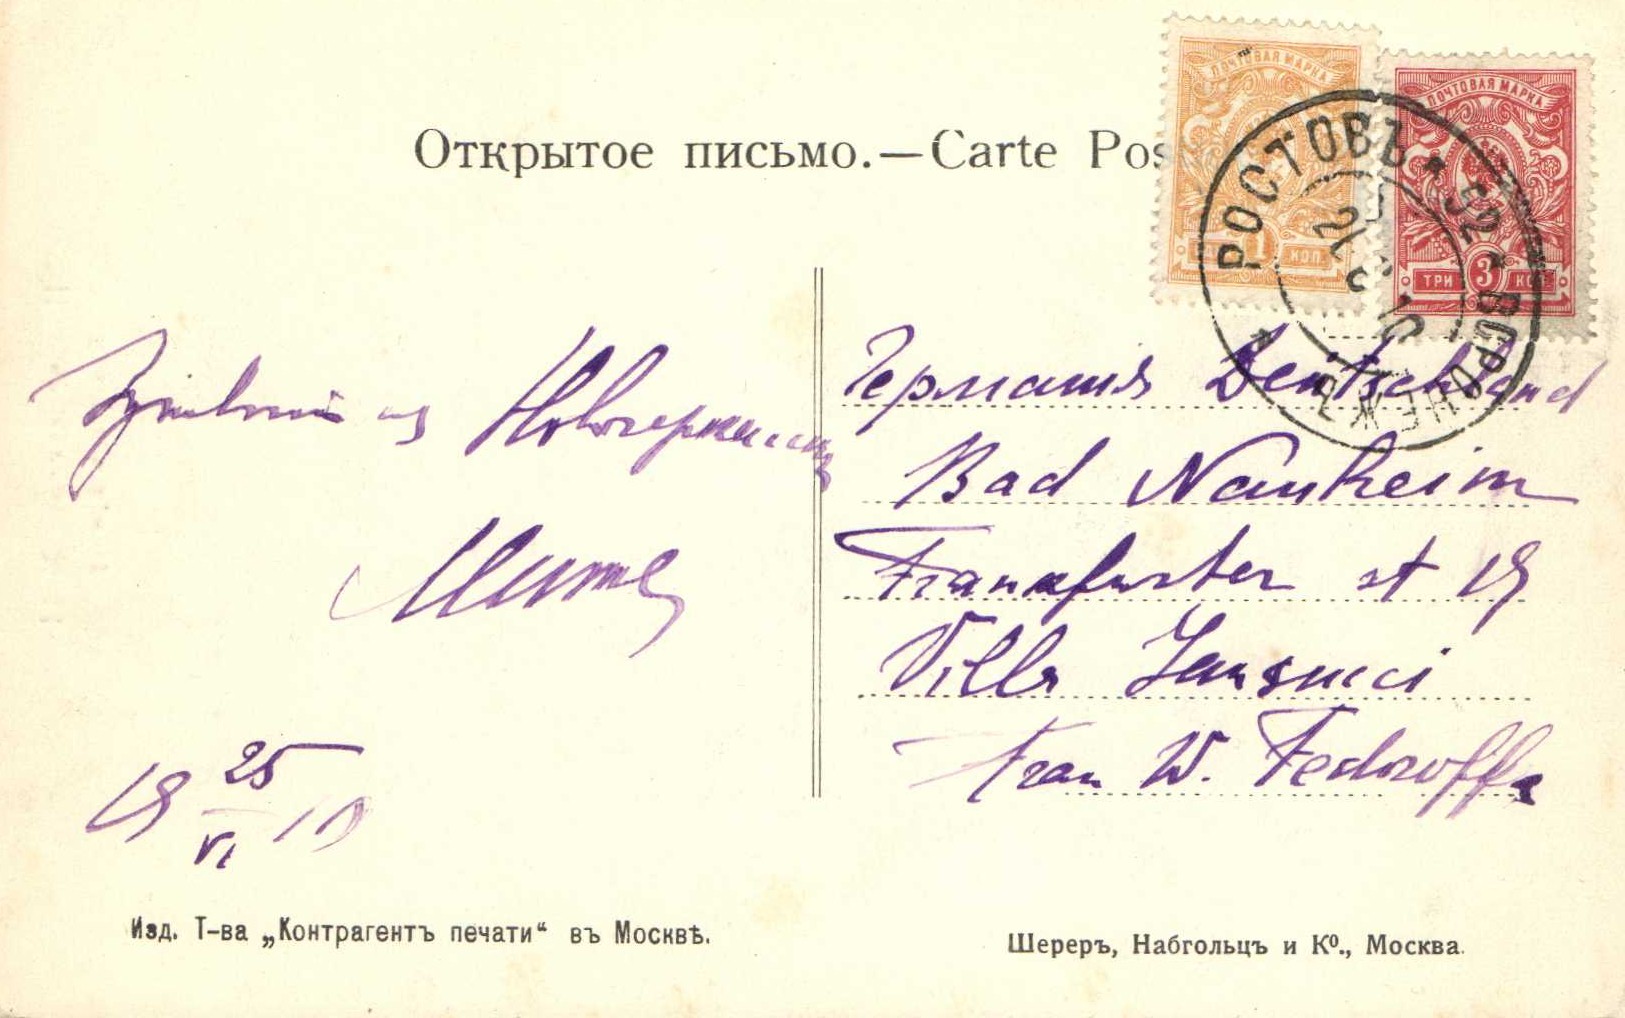 Открытое письмо.—Carte Pos
ПОЧТОВАЯ МАРКА
1 КОП.
ПОЧТОВАЯ МАРКА
ТРИ 3 КОП
РОСТОВЪ * 52 * ВОРОНЕЖЪ *
Германия Deutschland
Bad Nauheim
Frankfurter st 19
Villa
Frau W. Fedoroffa
из Новочеркасска
Митя
19 25/VI 10
Изд. Т-ва „Контрагентъ печати“ въ Москвѣ.
Шереръ, Набгольцъ и Ко., Москва.